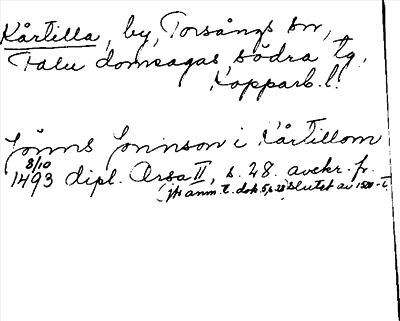 Kårtilla, by, Torsångs sn,
Falu domsagas södra tg.
Kopparb. l.
Jönns Jonnson i Kårtillom
8/10
1493 dipl. Arsa II, s. 28. avskr. fr.
(jfr anm. t. dok. s. 28) slutet av 1500-t.